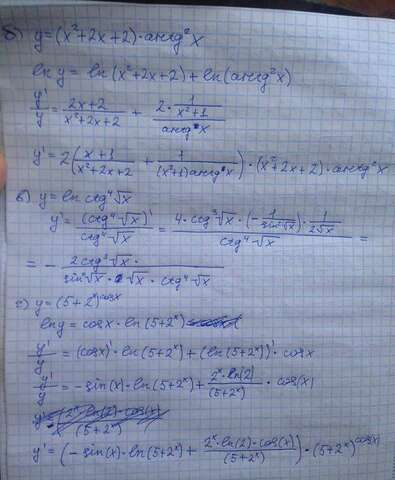 б) y=(x²+2x+2)·arctg²x
ln y = ln(x²+2x+2)+ln(arctg²x)
y'/y = (2x+2)/(x²+2x+2) + (2·1/(x²+1))/(arctg²x)
y' = 2((x+1)/(x²+2x+2) + 1/((x²+1)arctg²x))·(x²+2x+2)·arctg²x
в) y=ln ctg⁴√x
y' = (ctg⁴√x)'/(ctg⁴√x) = (4·ctg³√x·(-1/(sin²√x))·1/(2√x))/(ctg⁴√x) =
= - (2ctg³√x·)/(sin²√x·√x·ctg⁴√x)
г) y=(5+2ˣ)^cosx
ln y = cosx·ln(5+2ˣ)
y'/y = (cosx)'·ln(5+2ˣ)+(ln(5+2ˣ))'·cosx
y'/y = -sin(x)·ln(5+2ˣ)+(2ˣ·ln(2))/(5+2ˣ)·cos(x)
y'=(-sin(x)·ln(5+2ˣ)+(2ˣ·ln(2)·cos(x))/(5+2ˣ))·(5+2ˣ)^cos(x)